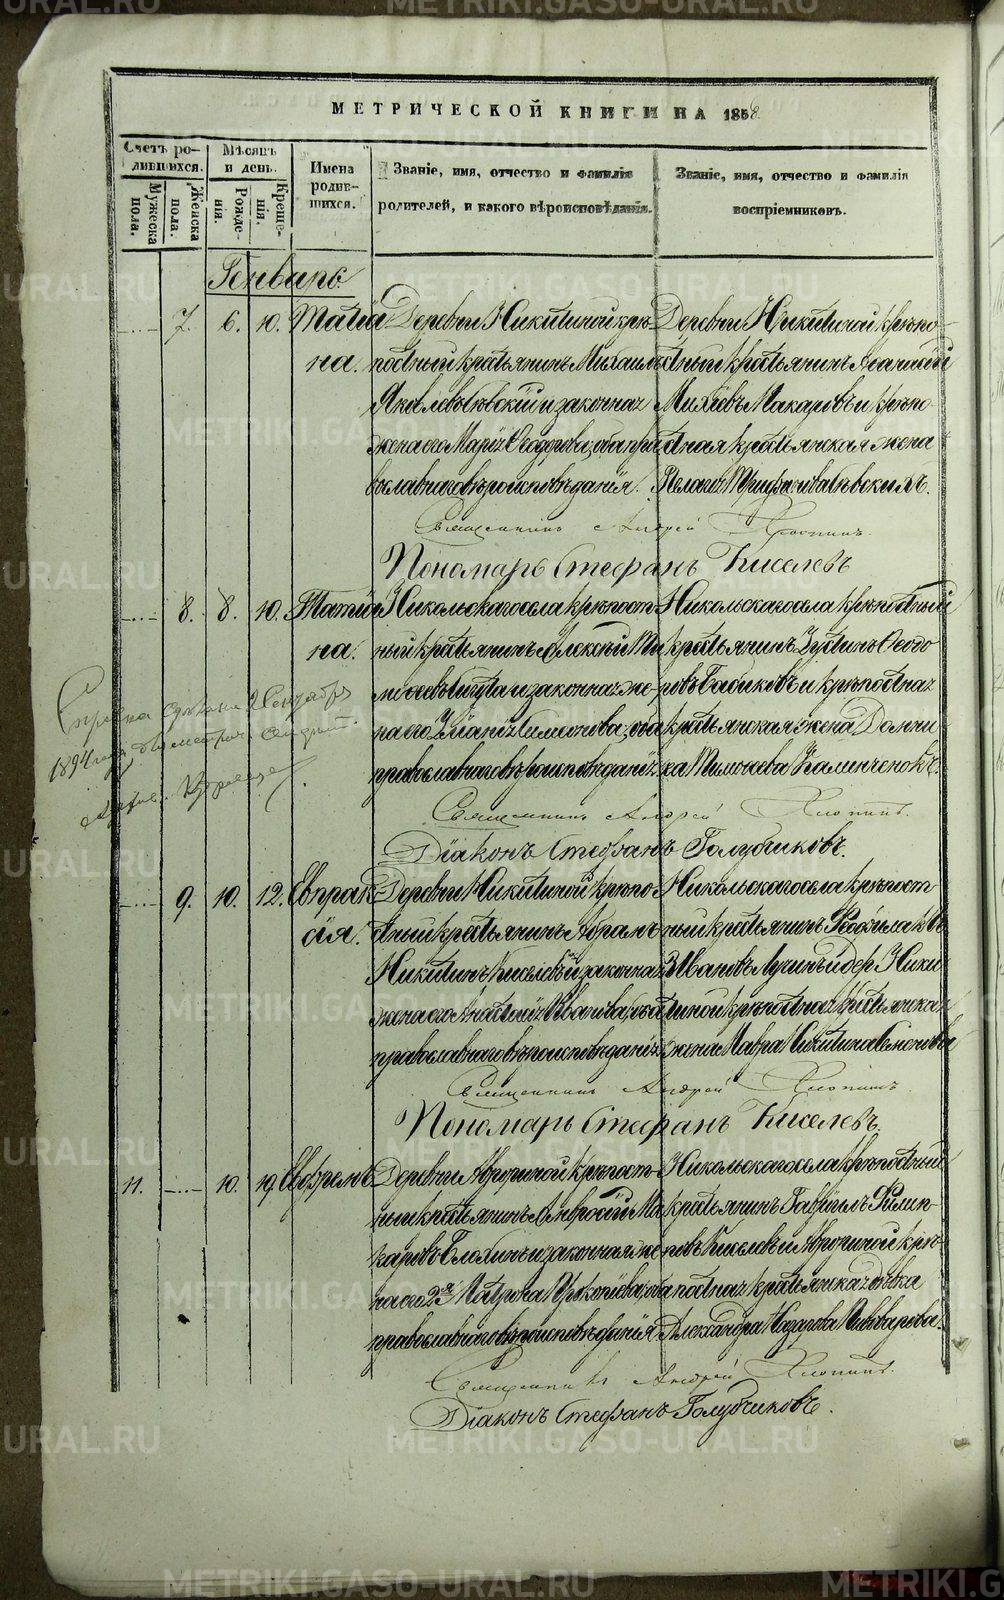 МЕТРИЧЕСКОЙ КНИГИ НА 1858
Счетъ ро-
дившихся.
Мужеска
пола.
Женска
пола.
Мѣсяцъ
и день.
Рожде-
нія.
Креще-
нія.
Имена
родив-
шихся.
Званіе, имя, отчество и фамилія
родителей, и какого вѣроисповѣданія.
Званіе, имя, отчество и фамилія
воспріемниковъ.
Генварь
7. 6. 10. Татіа
на.
Деревни Никитиной крѣ
постный крестьянинъ Михаилъ
Яковлевъ и законная
жена его Марія Ѳеодорова, оба пра
вославнаго вѣроисповѣданія.
Деревни Никитиной крѣпо-
стный крестьянинъ
Михѣевъ Макаровъ и крѣпо-
стная крестьянская жена
Пелагія
Священникъ Андрей Хлопинъ.
Пономарь Стефанъ Киселевъ
8. 8. 10. Татіа
на.
Никольскаго села крѣпост
ный крестьянинъ Алексѣй Ти
моѳеевъ и законная же-
на его Уліанія Симеонова, оба
православнаго вѣроисповѣданія
Никольскаго села крѣпостный
крестьянинъ Іустинъ Ѳеодо
ровъ Бабиковъ и крѣпостная
крестьянская жена Домни
ка Тимоѳеева
Справка сдѣлана 2 Сентября
1894 года
Священникъ Андрей Хлопинъ.
Діаконъ Стефанъ Голубчиковъ.
9. 10. 12. Евпрак
сія.
Деревни Никитиной крѣпо
стный крестьянинъ Абрамъ
Никитинъ Киселевъ и законная
жена его Анастасія Иванова, оба
православнаго вѣроисповѣданія
Никольскаго села крѣпост
ный крестьянинъ
Ивановъ Лучинъ и дер. Ники
тиной крѣпостная крестьянская
жена Мавра Никитина Семенова
Священникъ Андрей Хлопинъ
Пономарь Стефанъ Киселевъ.
11. 10. 19. Ефремъ
Деревни крѣпост
ный крестьянинъ Амвросій Ма
каровъ Блохинъ и законная же
на его 2я Матрона Прокопіева, оба
православнаго вѣроисповѣданія
Никольскаго села крѣпостный
крестьянинъ Гавріилъ Филип-
повъ Киселевъ и крѣ-
постная крестьянская дѣвка
Александра Назарова
Священникъ Андрей Хлопинъ.
Діаконъ Стефанъ Голубчиковъ.
METRIKI.GASO-URAL.RU